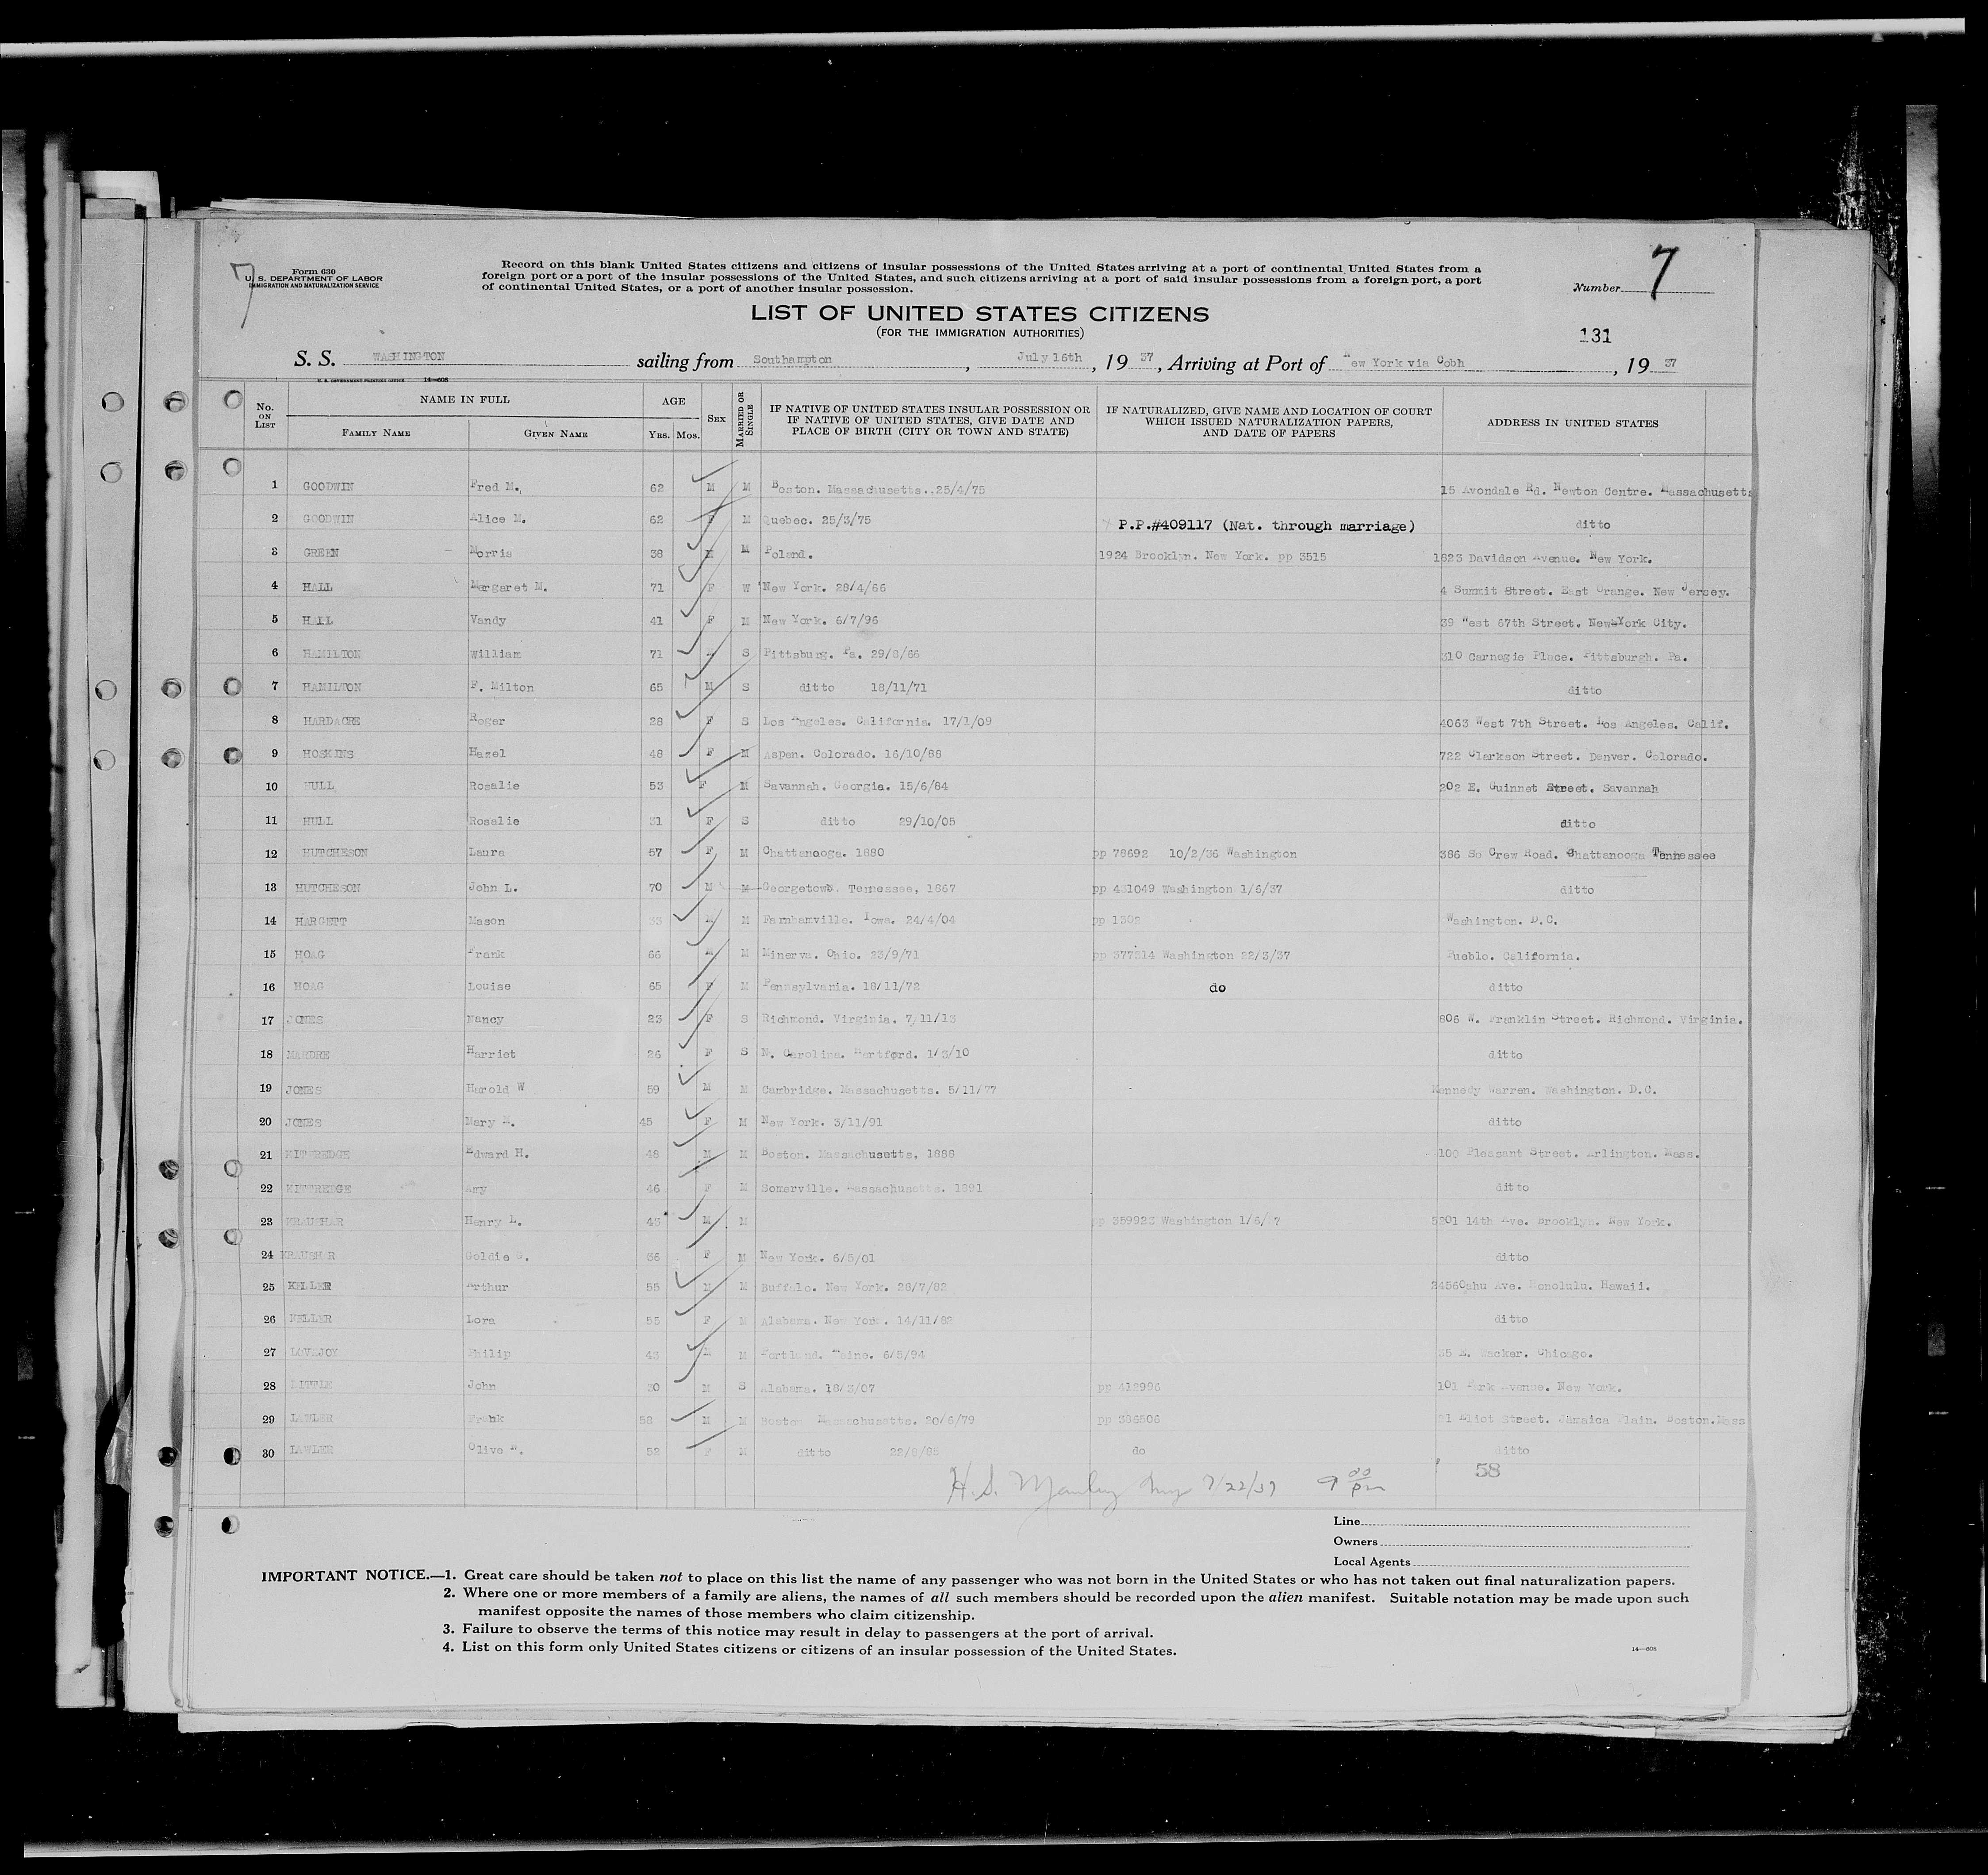 7
Form 630
U. S. DEPARTMENT OF LABOR
IMMIGRATION AND NATURALIZATION SERVICE
Record on this blank United States citizens and citizens of insular possessions of the United States arriving at a port of continental United States from a
foreign port or a port of the insular possessions of the United States, and such citizens arriving at a port of said insular possessions from a foreign port, a port
of continental United States, or a port of another insular possession.
Number 7
LIST OF UNITED STATES CITIZENS
(FOR THE IMMIGRATION AUTHORITIES)
131
S. S. WASHINGTON sailing from Southampton, July 16th, 1937, Arriving at Port of New York via Cobh, 1937
U. S. GOVERNMENT PRINTING OFFICE 14—608
No. ON LIST NAME IN FULL AGE SEX MARRIED OR SINGLE IF NATIVE OF UNITED STATES INSULAR POSSESSION OR IF NATIVE OF UNITED STATES, GIVE DATE AND PLACE OF BIRTH (CITY OR TOWN AND STATE) IF NATURALIZED, GIVE NAME AND LOCATION OF COURT WHICH ISSUED NATURALIZATION PAPERS, AND DATE OF PAPERS ADDRESS IN UNITED STATES
FAMILY NAME GIVEN NAME YRS. MOS.
1 GOODWIN Fred M. 62 M M Boston. Massachusetts. 25/4/75 15 Avondale Rd. Newton Centre. Massachusetts
2 GOODWIN Alice M. 62 F M Quebec. 25/3/75 P.P.#409117 (Nat. through marriage) ditto
3 GREEN Morris 38 M M Poland. 1924 Brooklyn. New York. pp 3515 1623 Davidson Avenue. New York.
4 HALL Margaret M. 71 F W New York. 28/4/66 4 Summit Street. East Orange. New Jersey.
5 HALL Vandy 41 F M New York. 6/7/96 39 West 67th Street. New York City.
6 HAMILTON William 71 S Pittsburg. Pa. 29/8/66 310 Carnegie Place. Pittsburgh. Pa.
7 HAMILTON F. Milton 65 M S ditto 18/11/71 ditto
8 HARDACRE Roger 28 F S Los Angeles. California. 17/1/09 4063 West 7th Street. Los Angeles. Calif.
9 HOSKINS Hazel 48 F M Aspen. Colorado. 16/10/88 722 Clarkson Street. Denver. Colorado.
10 HULL Rosalie 53 F M Savannah. Georgia. 15/6/84 202 E. Guinnet Street. Savannah
11 HULL Rosalie 31 F S ditto 29/10/05 ditto
12 HUTCHESON Laura 57 F M Chattanooga. 1880 pp 78692 10/2/36 Washington 386 So Crew Road. Chattanooga Tennessee
13 HUTCHESON John L. 70 M M Georgetown. Tennessee, 1867 pp 431049 Washington 1/6/37 ditto
14 HARGETT Mason 33 M M Farnhamville. Iowa. 24/4/04 pp 1302 Washington. D.C.
15 HOAG Frank 66 M M Minerva. Ohio. 23/9/71 pp 377314 Washington 22/3/37 Pueblo. California.
16 HOAG Louise 65 F M Pennsylvania. 18/11/72 do ditto
17 JONES Nancy 23 F S Richmond. Virginia. 7/11/13 806 W. Franklin Street. Richmond. Virginia.
18 MARDRE Harriet 26 F S N. Carolina. Hertford. 1/3/10 ditto
19 JONES Harold W 59 M M Cambridge. Massachusetts. 5/11/77 Kennedy Warren. Washington. D.C.
20 JONES Mary M. 45 F M New York. 3/11/91 ditto
21 KITTREDGE Edward H. 48 M M Boston. Massachusetts. 1888 100 Pleasant Street. Arlington. Mass.
22 KITTREDGE Amy 46 F M Somerville. Massachusetts. 1891 ditto
23 KRAUSHAR Henry L. 43 M M pp 359923 Washington 1/6/37 5201 14th Ave. Brooklyn. New York.
24 KRAUSH R Goldie 36 F M New York. 6/5/01 ditto
25 KELLER Arthur 55 M M Buffalo. New York. 26/7/82 2456Oahu Ave. Honolulu. Hawaii.
26 KELLER Lora 55 F M Alabama. New York. 14/11/82 ditto
27 LOVEJOY Philip 43 M M Portland. Maine. 6/5/94 35 E. Wacker. Chicago.
28 LITTLE John 30 M S Alabama. 18/3/07 pp 412996 101 Park Avenue. New York.
29 LAWLER Frank 58 M M Boston Massachusetts. 20/6/79 pp 386506 21 Eliot Street. Jamaica Plain. Boston.Mass
30 LAWLER Olive 52 F M ditto 22/8/85 do ditto
H. S. Manley Insp 7/22/37 9 00 pm
58
Line
Owners
Local Agents
IMPORTANT NOTICE.—1. Great care should be taken not to place on this list the name of any passenger who was not born in the United States or who has not taken out final naturalization papers.
2. Where one or more members of a family are aliens, the names of all such members should be recorded upon the alien manifest. Suitable notation may be made upon such
manifest opposite the names of those members who claim citizenship.
3. Failure to observe the terms of this notice may result in delay to passengers at the port of arrival.
4. List on this form only United States citizens or citizens of an insular possession of the United States.
14—608